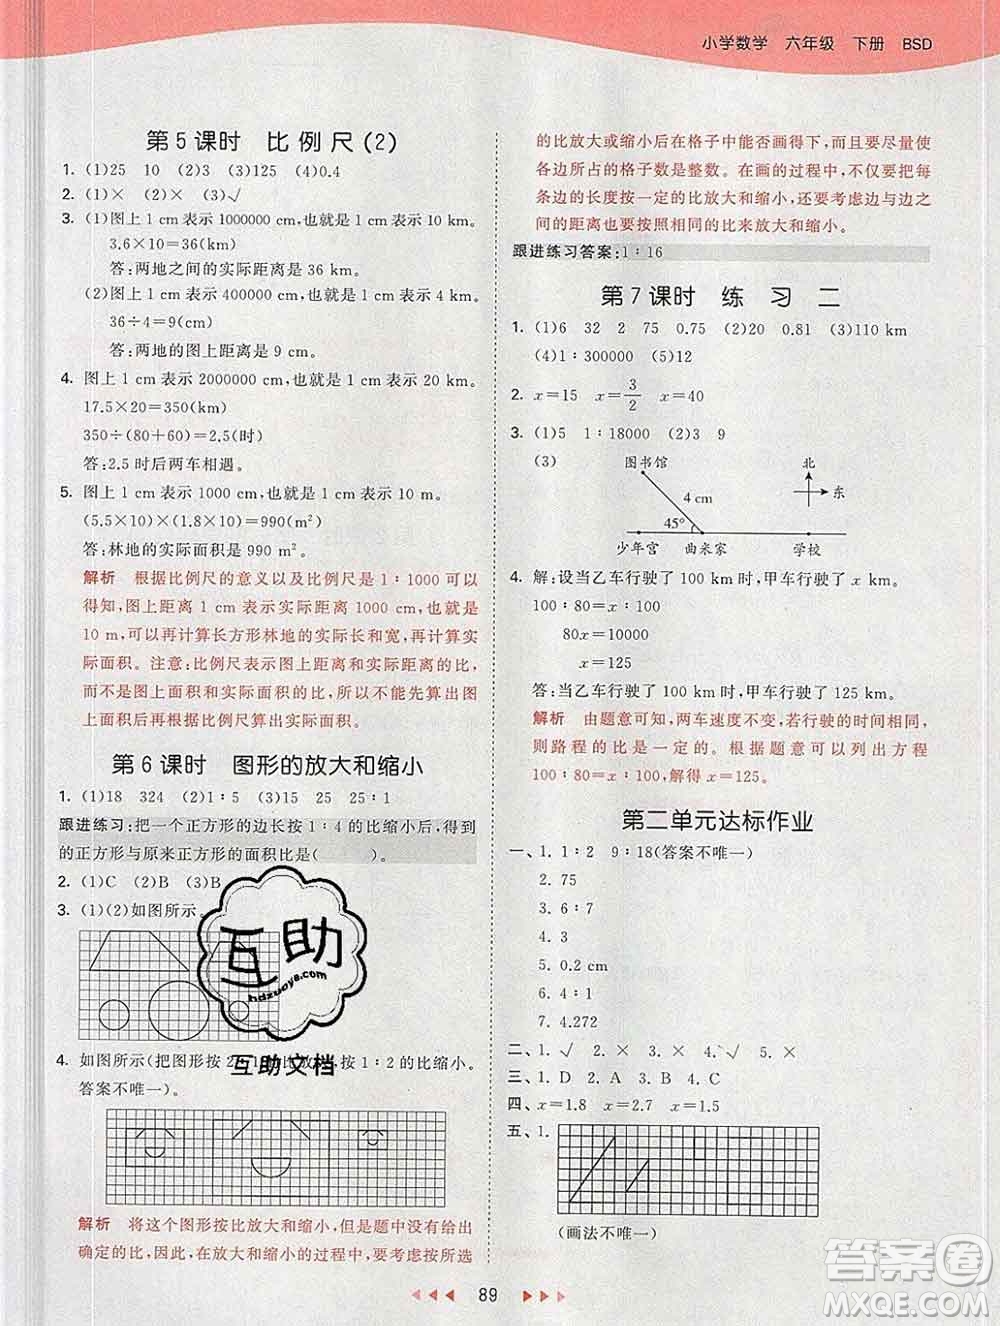 小学数学 六年级 下册 BSD
第 5 课时 比 例 尺 (2)
1. (1)25 10 (2)3 (3)125 (4)0.4
2. (1)× (2)× (3)√
3. (1)图上 1 cm 表示 1000000 cm,也就是表示 10 km。
3.6×10=36(km)
答:两地之间的实际距离是 36 km。
(2)图上 1 cm 表示 400000 cm,也就是表示 4 km。
36÷4=9(cm)
答:两地的图上距离是 9 cm。
4. 图上 1 cm 表示 2000000 cm,也就是表示 20 km。
17.5×20=350(km)
350÷(80+60)=2.5(时)
答:2.5 时后两车相遇。
5. 图上 1 cm 表示 1000 cm,也就是表示 10 m。
(5.5×10)×(1.8×10)=990(m²)
答:林地的实际面积是 990 m²。
解析 根据比例尺的意义以及比例尺是 1∶1000 可以
得知,图上距离 1 cm 表示实际距离 1000 cm,也就是
10 m,可以再计算长方形林地的实际长和宽,再计算
实际面积。注意:比例尺表示图上距离与实际距离的比,
而不是图上面积和实际面积的比,所以不能先算出图
上面积再根据比例尺算出实际面积。
第 6 课时 图形的放大和缩小
1. (1)18 324 (2)1∶5 (3)15 25 25∶1
跟进练习:把一个正方形的边长按 1∶4 的比缩小后,得到
的正方形与原来正方形的面积比是( )。
2. (1)C (2)B (3)B
3. (1)(2)如图所示。
互助
hdzuoye.com
4. 如图所示(把图形按 2∶1 的比放大,按 1∶2 的比缩小。
互助文档
答案不唯一)
解析 将这个图形按比放大和缩小,但是题中没有给出
确定的比,因此,在放大和缩小的过程中,要考虑按所选
的比放大或缩小后在格子中能否画得下,要尽量使
各边所占的格子数是整数。在画的过程中,不仅要把每
条边的长度按一定的比放大和缩小,还要考虑边与边之
间的距离也要按照相同的比来放大和缩小。
跟进练习答案:1∶16
第 7 课时 练 习 二
1. (1)6 32 2 75 0.75 (2)20 0.81 (3)110 km
(4)1∶300000 (5)12
2. x=15 x=3/2 x=40
3. (1)5 1∶18000 (2)3 9
(3) 图书馆 北
东
4 cm
45°
少年宫 曲米家 学校
4. 解:设当乙车行驶了 100 km 时,甲车行驶了 x km。
100∶80=x∶100
80x=10000
x=125
答:当乙车行驶了 100 km 时,甲车行驶了 125 km。
解析 由题意可知,两车速度不变,若行驶的时间相同,
则路程的比是一定的。根据题意可以列出方程
100∶80=x∶100,解得 x=125。
第二单元达标作业
一、1. 1∶2 9∶18(答案不唯一)
2. 75
3. 6∶7
4. 3
5. 0.2 cm
6. 7∶1
7. 4.272
二、1. √ 2. × 3. × 4. √ 5. ×
三、1. D 2. A 3. C 4. B
四、x=1.8 x=2.4 x=1.5
五、1.
(画法不唯一)
89
答案圈
MXQE.COM